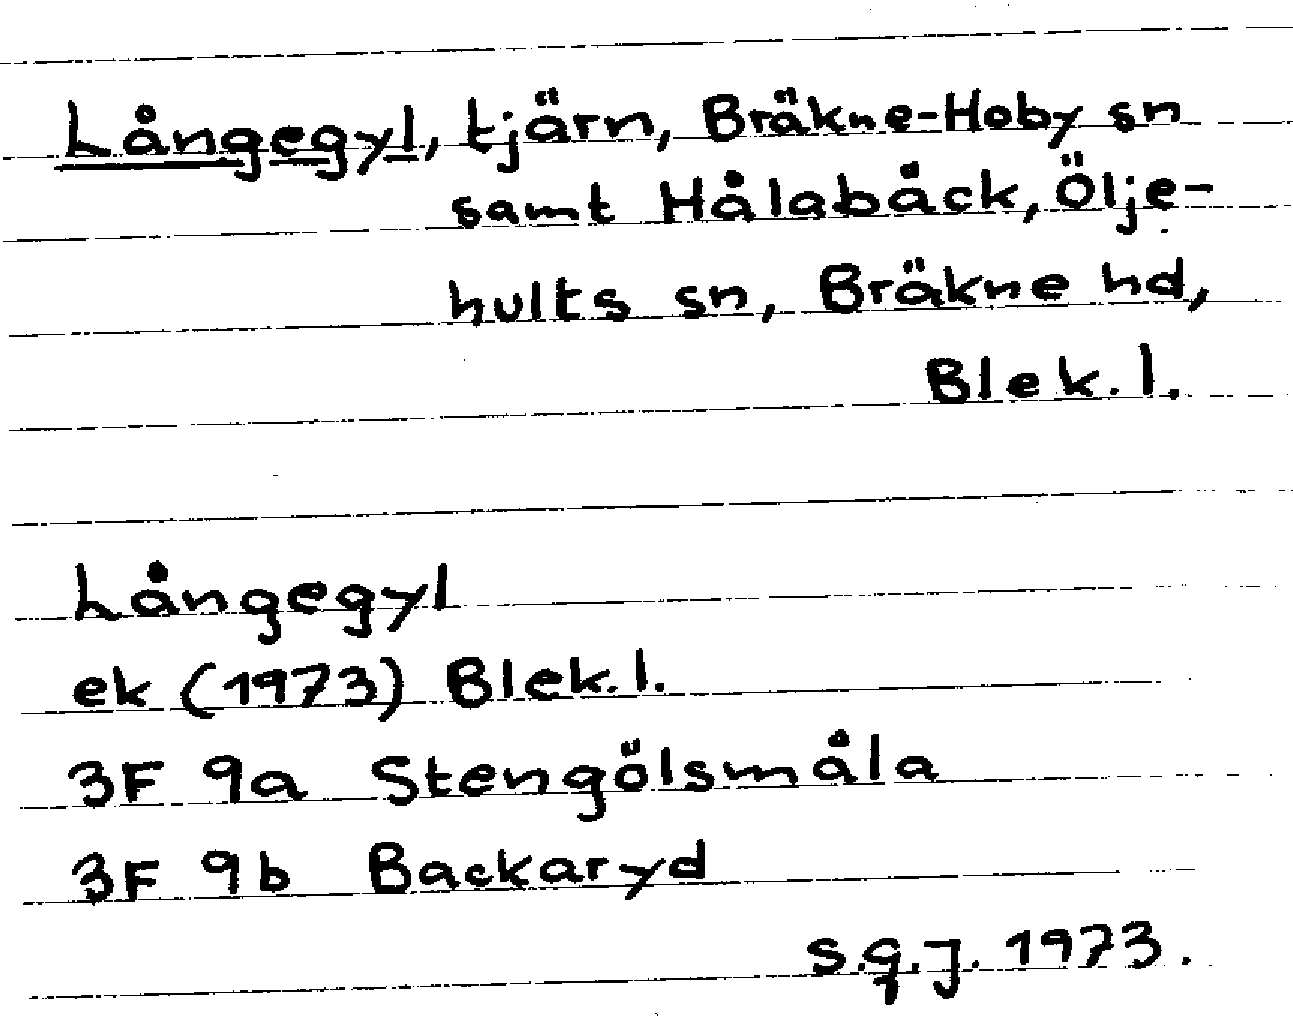 Långegyl, tjärn, Bräkne-Hoby sn
samt Hålabäck, Ölje-
hults sn, Bräkne hd,
Blek. l.
Långegyl
ek (1973) Blek. l.
3F 9a Stengölsmåla
3F 9b Backaryd
S.g.J. 1973.